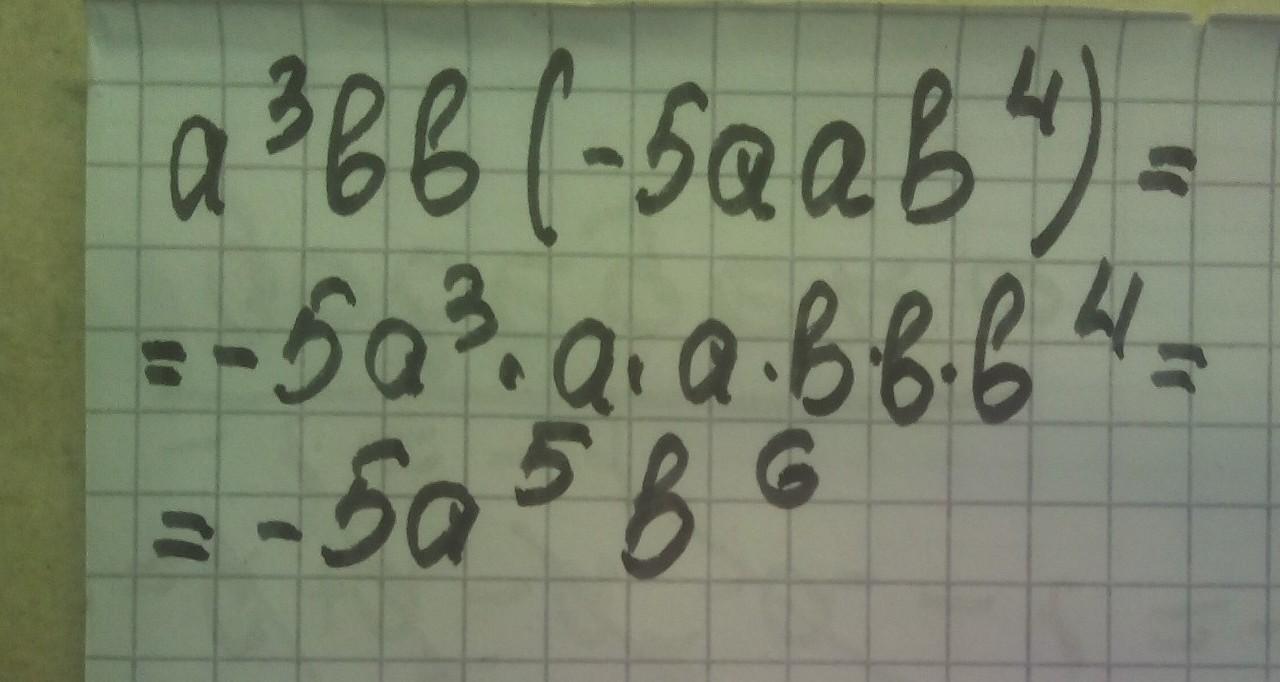 a³bb(-5aab⁴)=
=-5a³·a·a·b·b·b⁴=
=-5a⁵b⁶